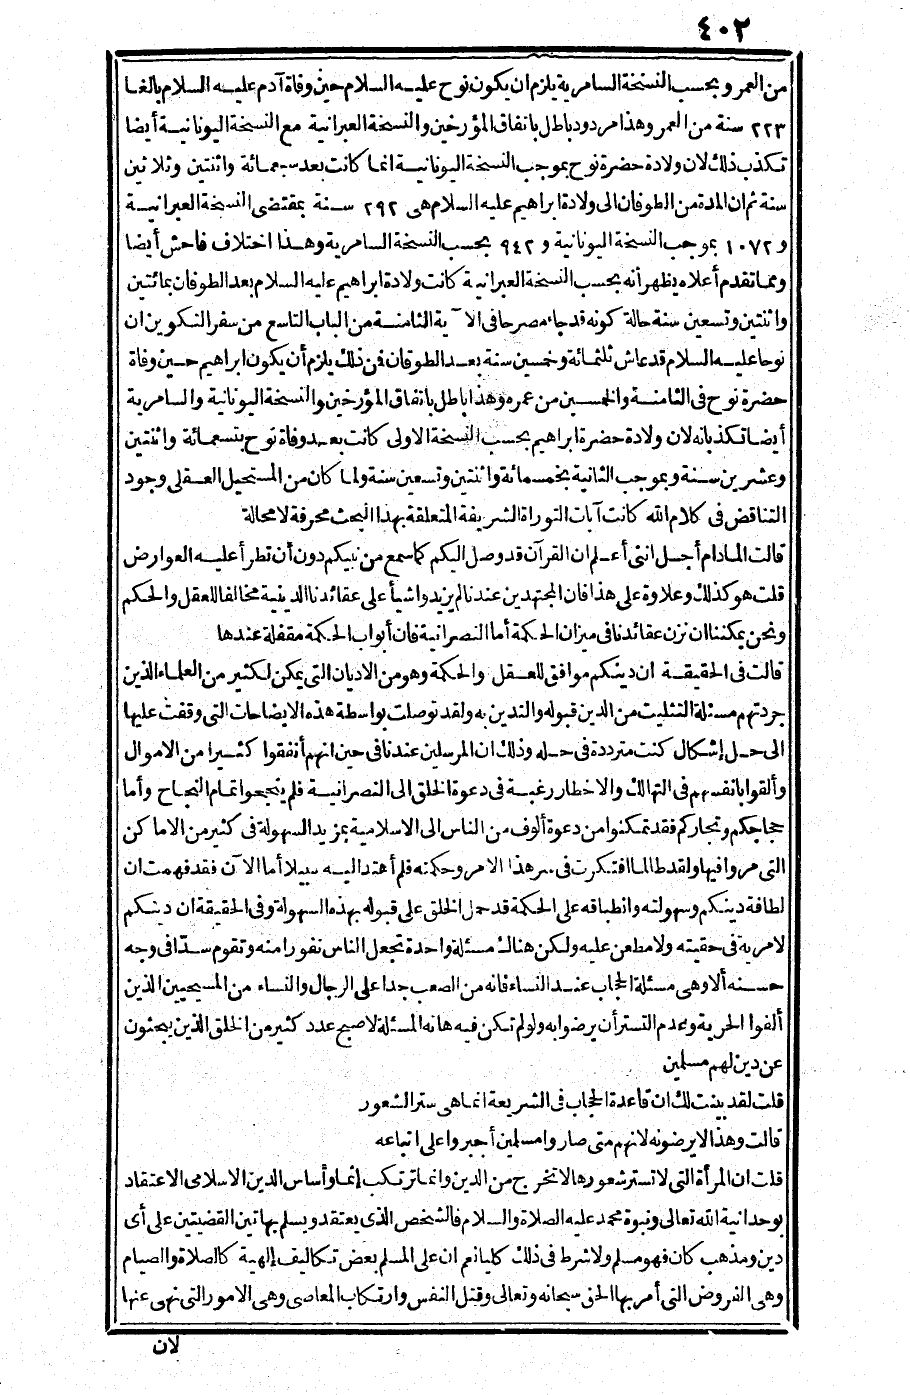 ٤٠٢
من العمر وبحسب النسخة السامرية يلزم ان يكون نوح عليه السلام حين وفاة آدم عليه السلام بالغا
٢٢٣ سنة من العمر وهذا مردود باطل باتفاق المؤرخين والنسخة العبرانية مع النسخة اليونانية أيضا
تكذب ذلك لان ولادة حضرة نوح بموجب النسخة اليونانية انما كانت بعد سبعمائة واثنتين وثلاثين
سنة ثم ان المدة من الطوفان الى ولادة ابراهيم عليه السلام هى ٢٩٢ سنة بمقتضى النسخة العبرانية
و ١٠٧٢ بموجب النسخة اليونانية و ٩٤٢ بحسب النسخة السامرية وهذا اختلاف فاحش أيضا
ومما تقدم أعلاه يظهر أنه بحسب النسخة العبرانية كانت ولادة ابراهيم عليه السلام بعد الطوفان بمائتين
واثنتين وتسعين سنة حالة كونه قد جاء مصرحا فى الآية الثامنة من الباب التاسع من سفر التكوين ان
نوحا عليه السلام قد عاش ثلثمائة وخمسين سنة بعد الطوفان فمن ذلك يلزم أن يكون ابراهيم حين وفاة
حضرة نوح فى الثامنة والخمسين من عمره وهذا باطل باتفاق المؤرخين والنسخة اليونانية والسامرية
أيضا تكذبانه لان ولادة حضرة ابراهيم بحسب النسخة الاولى كانت بعد وفاة نوح بتسعمائة واثنتين
وعشرين سنة وبموجب الثانية بخمسمائة واثنتين وتسعين سنة ولما كان من المستحيل العقلى وجود
التناقض فى كلام الله كانت آيات التوراة الشريفة المتعلقة بهذا البحث محرفة لا محالة
قالت المادام أجل انى أعلم ان القرآن قد وصل اليكم كما سمع من نبيكم دون أن تطرأ عليه العوارض
قلت هو كذلك وعلاوة على هذا فان المجتهدين عندنا لم يزيدوا شيأ على عقائدنا الدينية مخالفا للعقل والحكم
ونحن يمكننا ان نزن عقائدنا فى ميزان الحكمة أما النصرانية فان أبواب الحكمة مقفلة عندها
قالت فى الحقيقة ان دينكم موافق للعقل والحكمة وهو من الاديان التى يمكن لكثير من العلماء الذين
جردتهم مسئلة التثليث من الدين قبوله والتدين به ولقد توصلت بواسطة هذه الايضاحات التى وقفت عليها
الى حل إشكال كنت مترددة فى حله وذلك ان المرسلين عندنا فى حين انهم أنفقوا كثيرا من الاموال
وألقوا بانفسهم فى التهالك والاخطار رغبة فى دعوة الخلق الى النصرانية فلم ينجحوا تمام النجاح وأما
حجاجكم وتجاركم فقد تمكنوا من دعوة ألوف من الناس الى الاسلامية بمزيد السهولة فى كثير من الاماكن
التى مروا فيها ولقد طالما افتكرت فى سر هذا الامر وحكمته فلم أهتد اليه سبيلا أما الآن فقد فهمت ان
لطافة دينكم وسهولته وانطباقه على الحكمة قد حمل الخلق على قبوله بهذه السهولة وفى الحقيقة ان دينكم
لا مرية فى حقيته ولا مطعن عليه ولكن هناك مسئلة واحدة تجعل الناس نفورا منه وتقوم سدّا فى وجه
حسنه ألا وهى مسئلة الحجاب عند النساء فانه من الصعب جدا على الرجال والنساء من المسيحيين الذين
ألفوا الحرية وعدم التستر أن يرضوا به ولو لم تكن فيه هاته المسئلة لاصبح عدد كثير من الخلق الذين يبحثون
عن دين لهم مسلمين
قلت لقد بينت لك ان قاعدة الحجاب فى الشريعة انما هى ستر الشعور
قالت وهذا لا يرضونه لانهم متى صاروا مسلمين أجبروا على اتباعه
قلت ان المرأة التى لا تستر شعورها لا تخرج من الدين وانما ترتكب إثما وأساس الدين الاسلامى الاعتقاد
بوحدانية الله تعالى ونبوة محمد عليه الصلاة والسلام فالشخص الذى يعتقد ويسلم بهاتين القضيتين على أى
دين ومذهب كان فهو مسلم ولا شرط فى ذلك كليا نعم ان على المسلم بعض تكاليف إلهية كالصلاة والصيام
وهى الفروض التى أمر بها الحق سبحانه وتعالى وقتل النفس وارتكاب المعاصى وهى الامور التى نهى عنها
لان